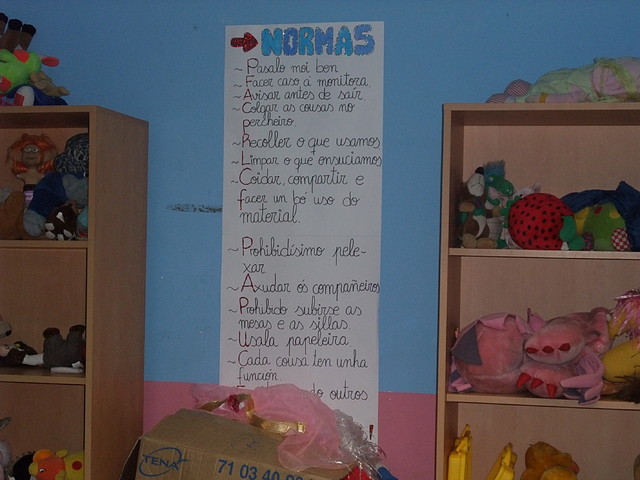 NORMAS
~ Pasalo moi ben
~ Facer caso á monitora
~ Avisar antes de saír
~ Colgar as cousas no
percheiro
~ Recoller o que usamos
~ Limpar o que ensuciamos
~ Coidar, compartir e
facer un bo uso do
material.
~ Prohibidísimo pele-
xar
~ Axudar ós compañeiros
~ Prohibido subirse ás
mesas e as sillas.
~ Usala papeleira
~ Cada cousa ten unha
función
do outros
!
TENA
71 03 40